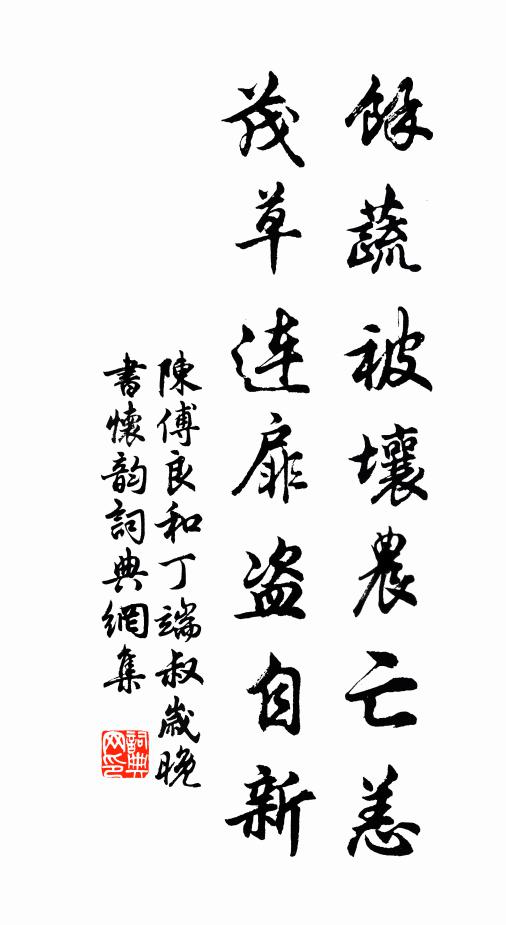 餘蔬被壤農亡恙
茂草連扉盗自新
陳傅良和丁端叔歲晚
書懷韵詞典網集
詞典網印